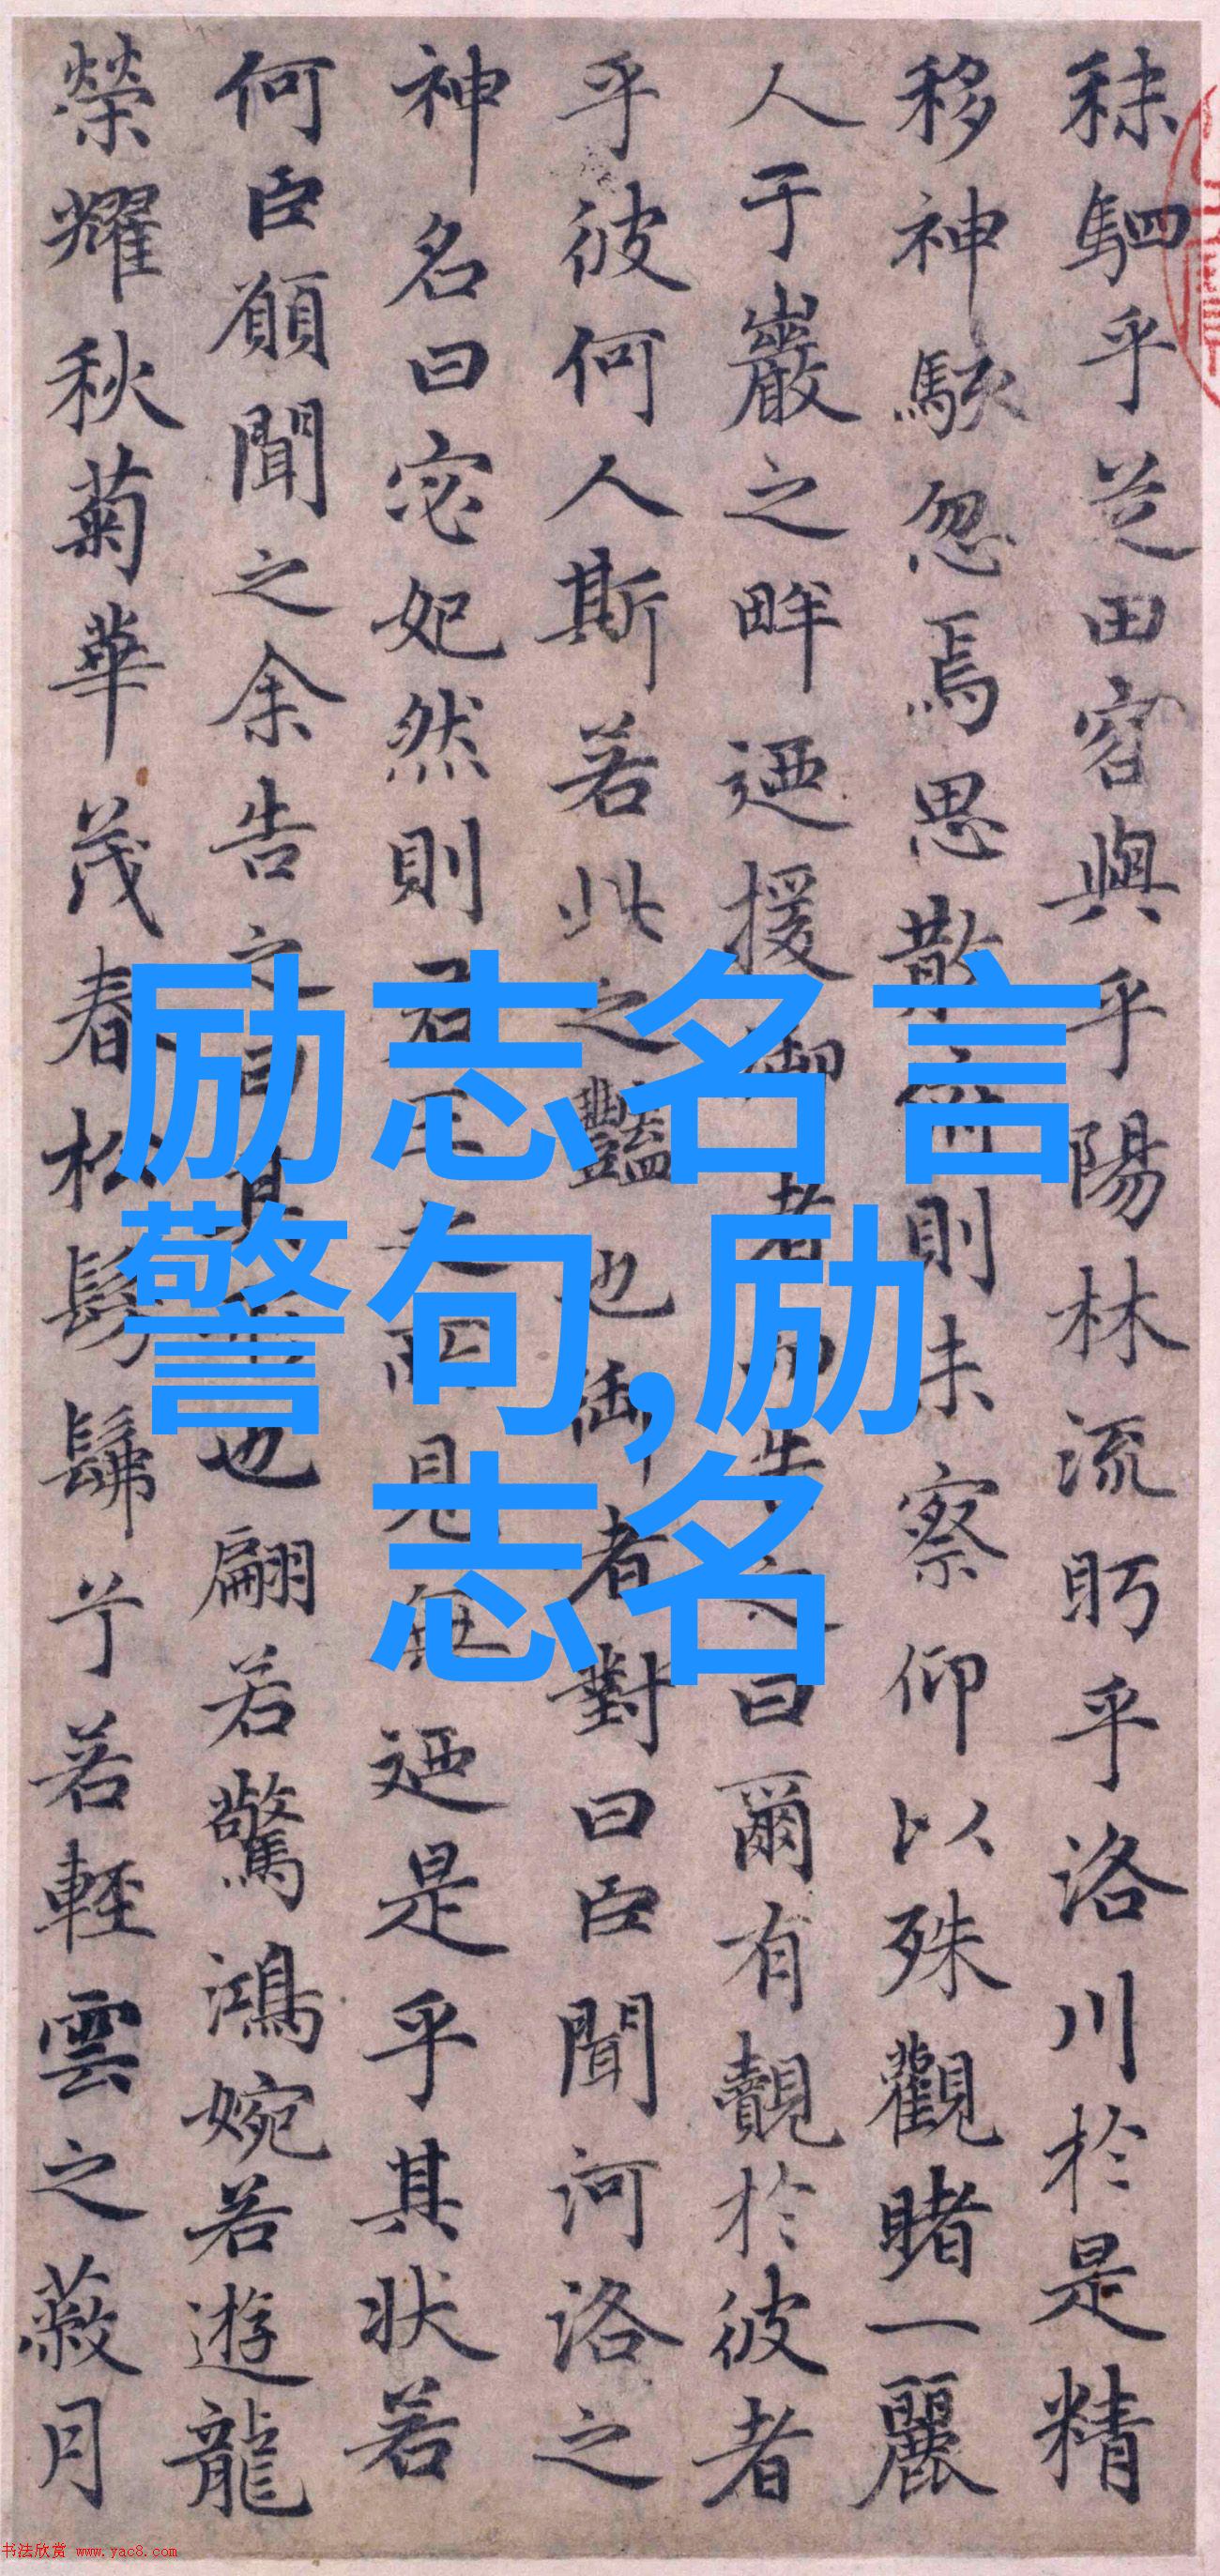 秣駟乎芝田容與乎陽林流眄乎洛川於是精
移神駭忽焉思散俯則未察仰以殊觀睹一麗
人于巖之畔迺援御者而告之曰爾有覿於彼者
乎彼何人斯若此之豔也御者對曰臣聞河洛之
神名曰宓妃然則君王之所見無迺是乎其狀若
何臣願聞之余告之曰其形也翩若驚鴻婉若遊龍
榮耀秋菊華茂春松髣髴兮若輕雲之蔽月
励志名言
警句,励
志名
书法欣赏 www.yac8.com